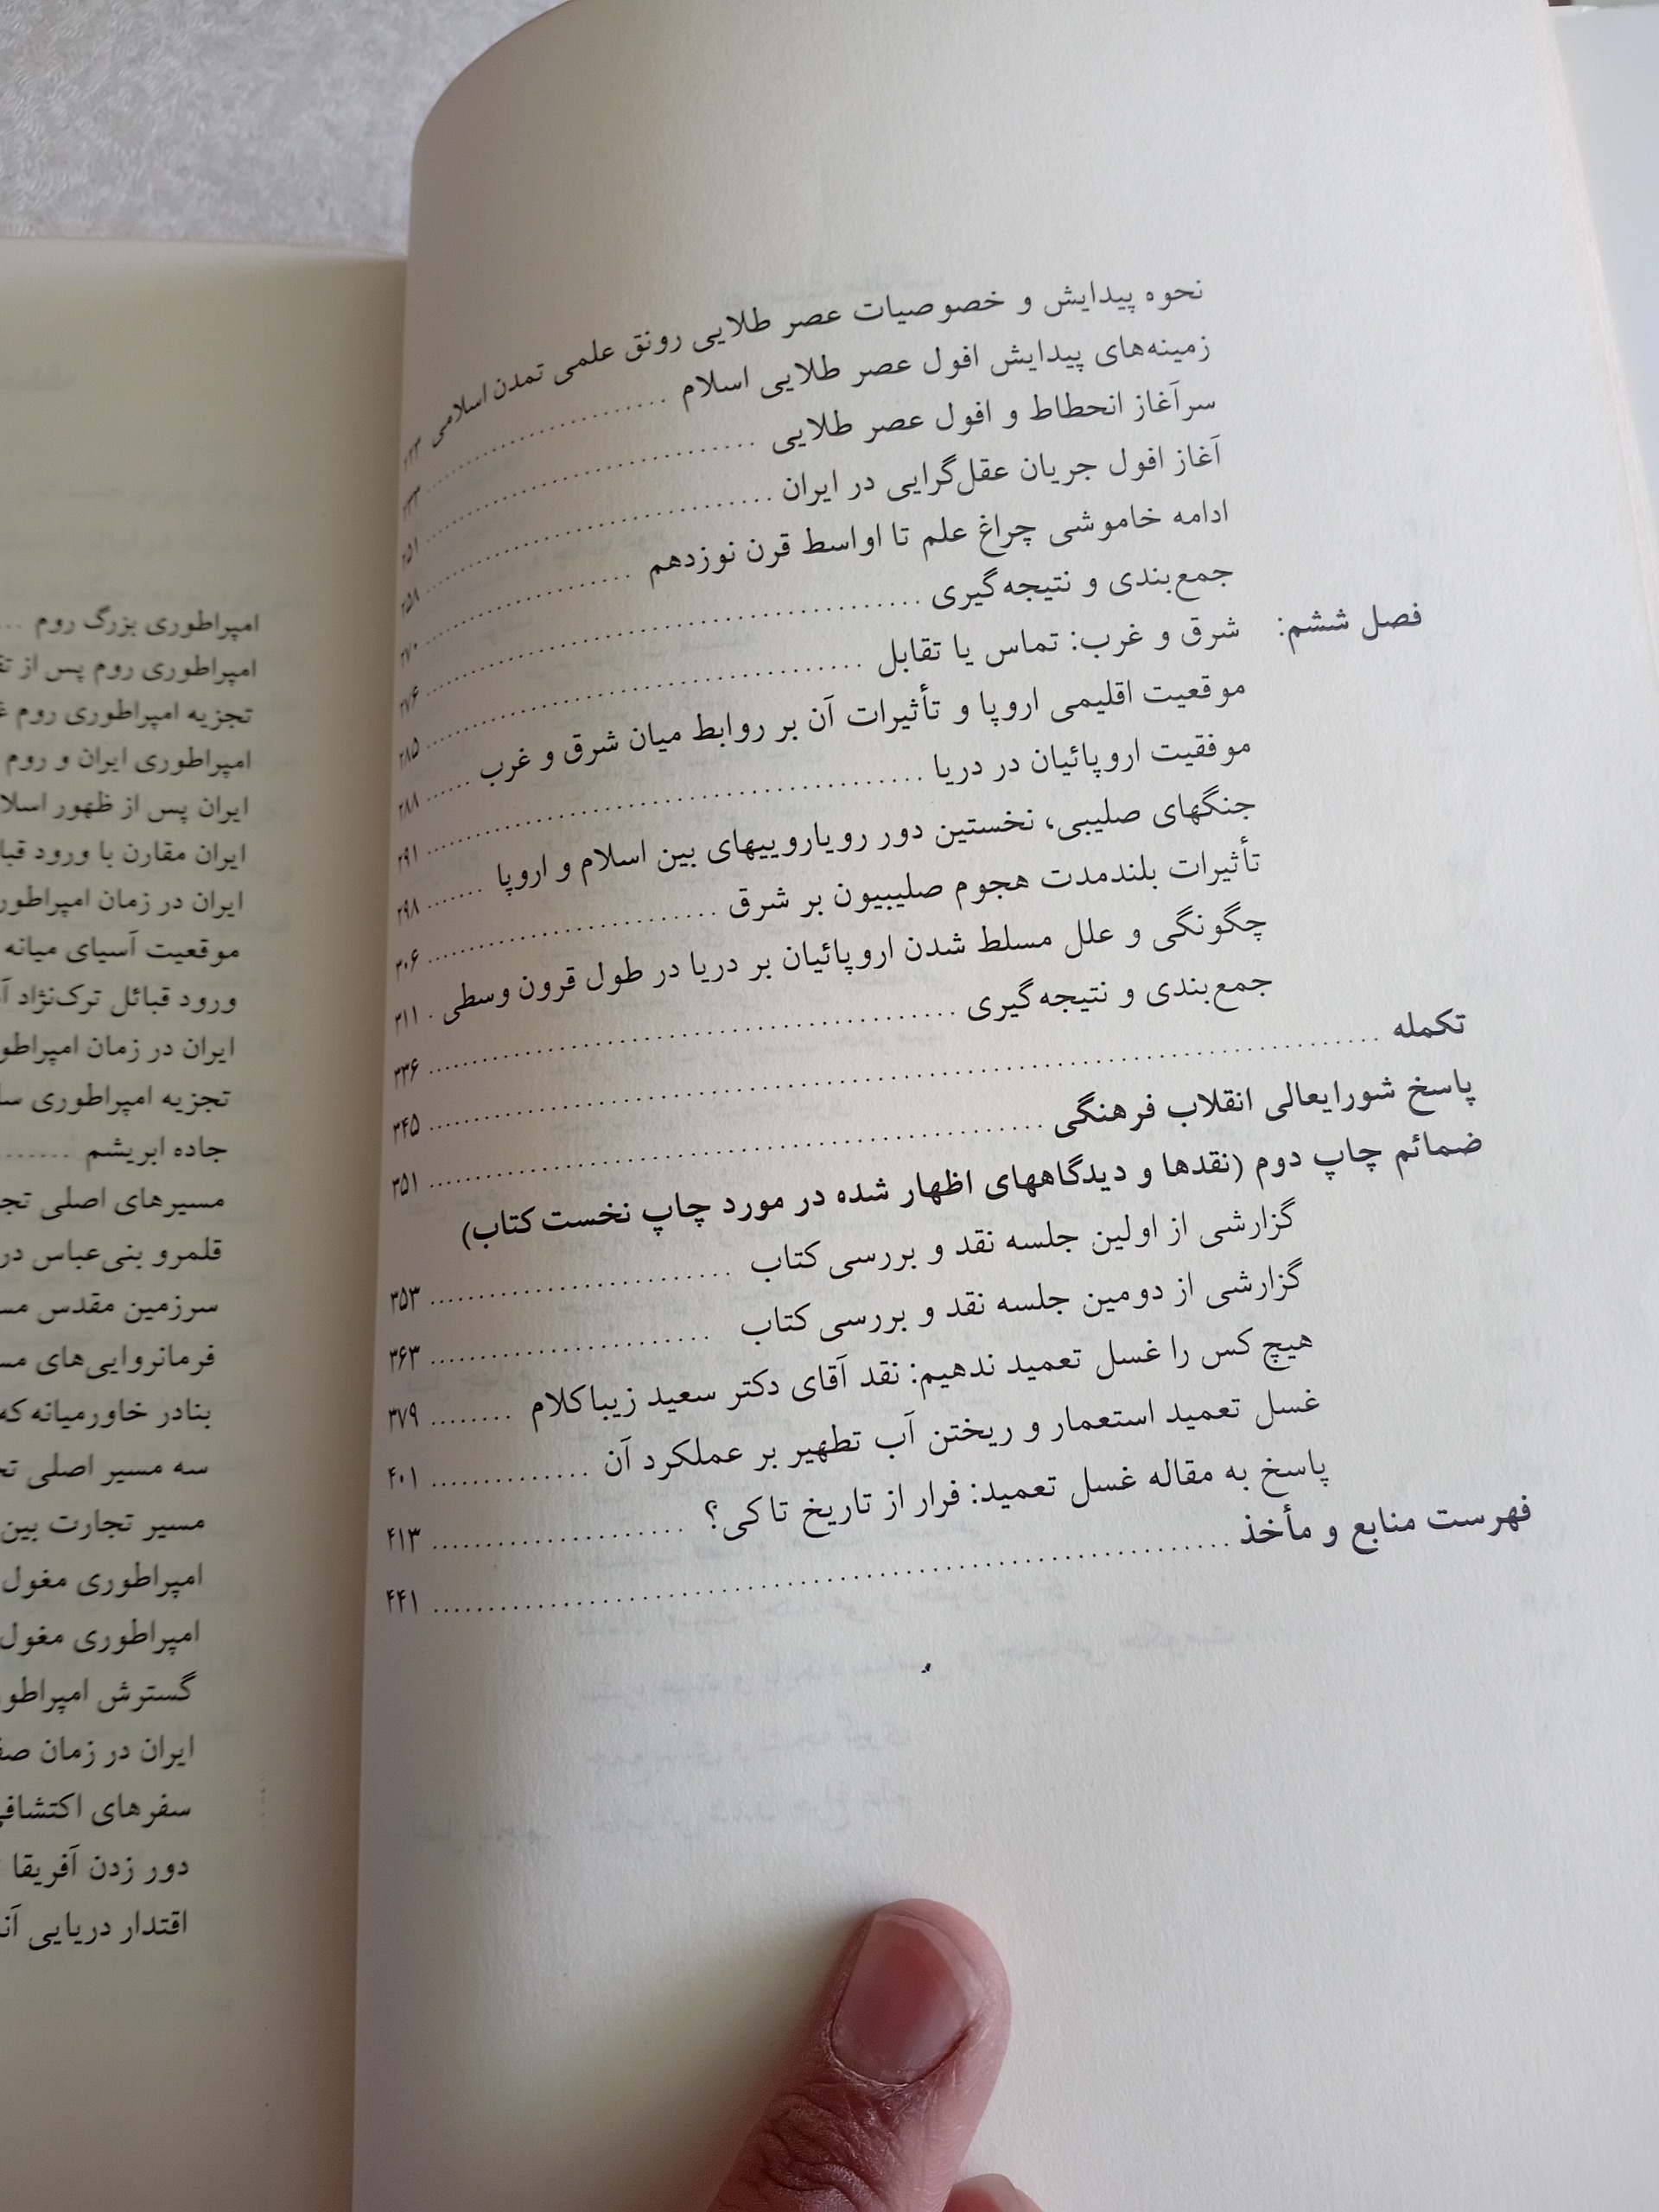 نحوه پیدایش و خصوصیات عصر طلایی رونق علمی تمدن اسلامی ۲۲۳
زمینه‌های پیدایش افول عصر طلایی اسلام ........ ۲۳۳
سرآغاز انحطاط و افول عصر طلایی ........ ۲۵۱
آغاز افول جریان عقل‌گرایی در ایران ........ ۲۵۸
ادامه خاموشی چراغ علم تا اواسط قرن نوزدهم ........ ۲۷۰
جمع‌بندی و نتیجه‌گیری ........ ۲۷۶
فصل ششم: شرق و غرب: تماس یا تقابل ........ ۲۸۵
موقعیت اقلیمی اروپا و تأثیرات آن بر روابط میان شرق و غرب ........ ۲۸۸
موفقیت اروپائیان در دریا ........ ۲۹۱
جنگهای صلیبی، نخستین دور رویاروییهای بین اسلام و اروپا ........ ۲۹۸
تأثیرات بلندمدت هجوم صلیبیون بر شرق ........ ۳۰۶
چگونگی و علل مسلط شدن اروپائیان بر دریا در طول قرون وسطی . ۳۱۱
جمع‌بندی و نتیجه‌گیری ........ ۳۳۶
تکمله ........ ۳۴۵
پاسخ شورایعالی انقلاب فرهنگی ........ ۳۵۱
ضمائم چاپ دوم (نقدها و دیدگاههای اظهار شده در مورد چاپ نخست کتاب)
گزارشی از اولین جلسه نقد و بررسی کتاب ........ ۳۵۳
گزارشی از دومین جلسه نقد و بررسی کتاب ........ ۳۶۳
هیچ کس را غسل تعمید ندهیم: نقد آقای دکتر سعید زیباکلام ........ ۳۷۹
غسل تعمید استعمار و ریختن آب تطهیر بر عملکرد آن ........ ۴۰۱
پاسخ به مقاله غسل تعمید: فرار از تاریخ تا کی؟ ........ ۴۱۳
فهرست منابع و مأخذ ........ ۴۴۱
امپراطوری بزرگ روم ...
امپراطوری روم پس از
تجزیه امپراطوری روم
امپراطوری ایران و روم
ایران پس از ظهور
ایران مقارن با ورود
ایران در زمان
موقعیت آسیای میانه
ورود قبائل ترک‌نژاد
ایران در زمان
تجزیه امپراطوری
جاده ابریشم ........
مسیرهای اصلی
قلمرو بنی‌عباس در
سرزمین مقدس
فرمانروایی‌های
بنادر خاورمیانه که
سه مسیر اصلی
مسیر تجارت بین
امپراطوری مغول
امپراطوری مغول
گسترش
ایران در زمان
سفرهای
دور زدن آفریقا
اقتدار دریایی